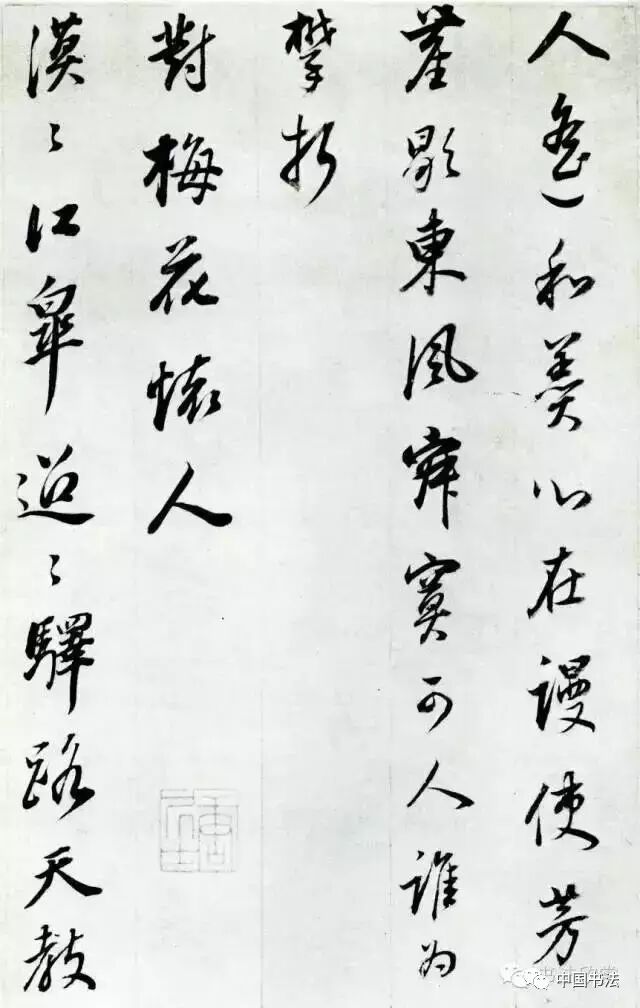 人遙和羹心在謾使芳
塵歇東風寂寞可人誰為
攀折
對梅花懷人
漠〻江皋迢〻驛路天教
中国书法